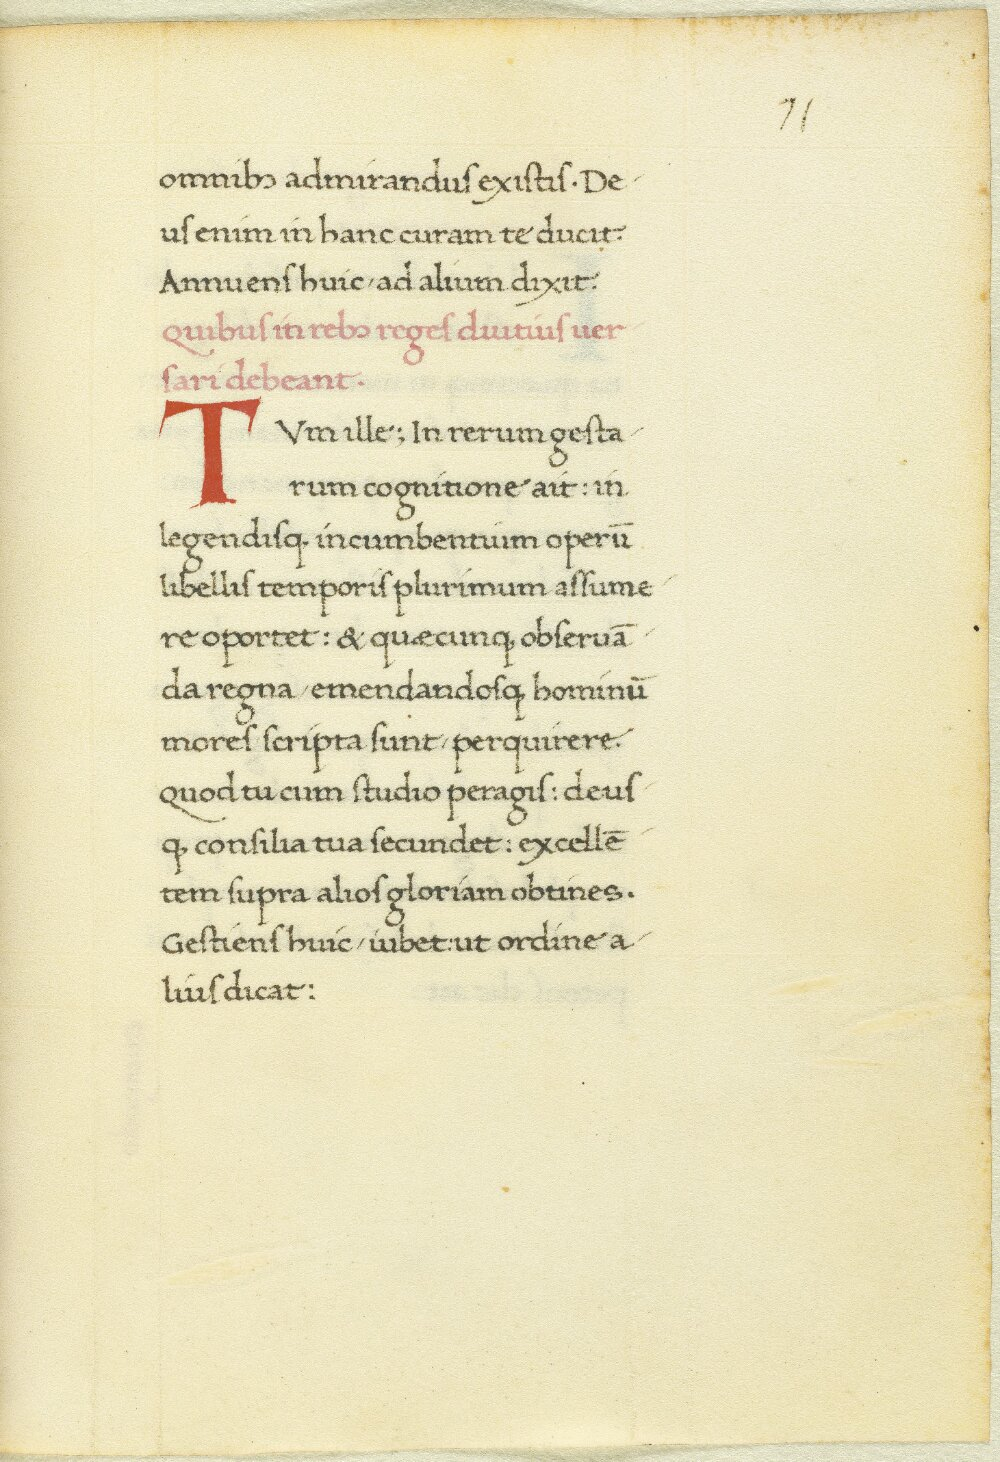 71
omnibꝫ admirandus existis. De-
us enim in hanc curam te ducit:
Annuens huic/ ad alium dixit:
Quibus in rebꝫ reges diutius uer-
sari debeant.
TVm ille; In rerum gesta-
rum cognitione ait: in
legendisq; incumbentium operū
libellis temporis plurimum assume-
re oportet: & quæcunq; obseruā-
da regna/ emendandosq; hominū
mores scripta sunt/ perquirere.
Quod tu cum studio peragis: deus-
q; consilia tua secundet: excellē-
tem supra alios gloriam obtines.
Gestiens huic/ iubet: ut ordine a-
lius dicat: